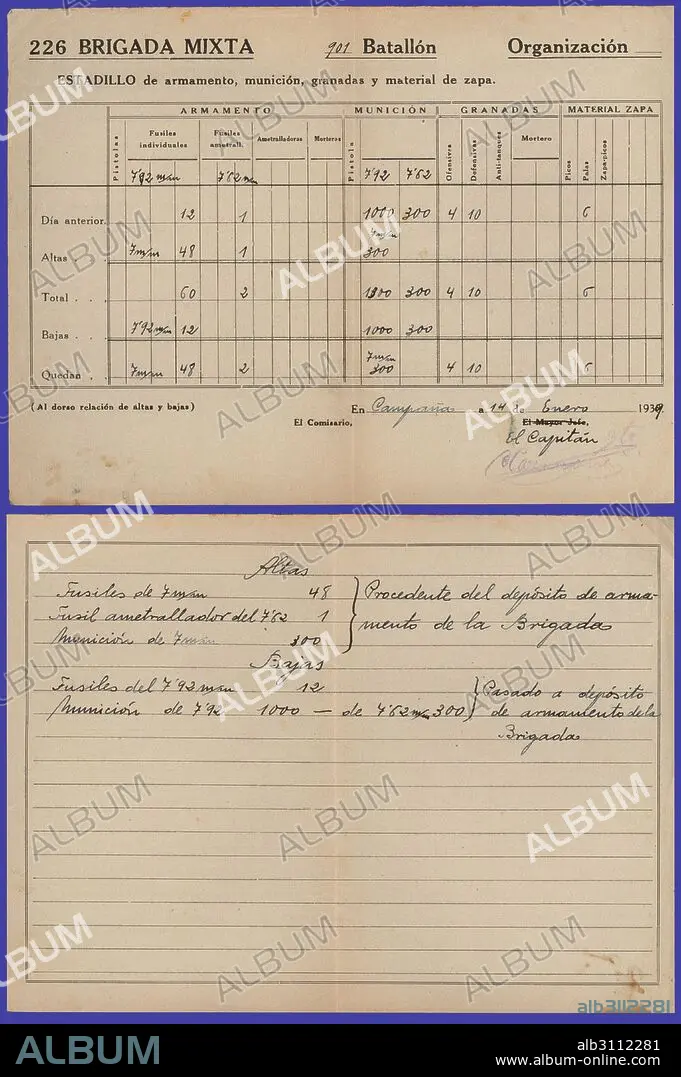 226 BRIGADA MIXTA 901 Batallón Organización
ESTADILLO de armamento, munición, granadas y material de zapa.
ARMAMENTO MUNICIÓN GRANADAS MATERIAL ZAPA
Pistolas Fusiles individuales Fusiles ametrall. Ametralladoras Morteros Pistola Ofensivas Defensivas Anti-tanques Mortero Picos Palas Zapa-picos
7'92 m/m 7'62 m/m 7'92 7'62
Día anterior. 12 1 1000 300 4 10 6
Altas . . 7 m/m 48 1 7 m/m 300
Total . . . 60 2 1300 300 4 10 6
Bajas . . . 7'92 m/m 12 1000 300
Quedan . . 7 m/m 48 2 7 m/m 300 4 10 6
(Al dorso relación de altas y bajas) En Campaña a 14 de Enero 1939.
El Comisario, El Mayor Jefe,
El Capitán
Altas
Fusiles de 7 m/m 48 Procedente del depósito de arma-
Fusil ametrallador del 7'62 1 mento de la Brigada
Munición de 7 m/m 300
Bajas
Fusiles del 7'92 m/m 12 Pasado a depósito
Munición de 7'92 1000 — de 7'62 m/m 300 de armamento de la
Brigada
alb3112281
ALBUM
alb3112281
www.album-online.com